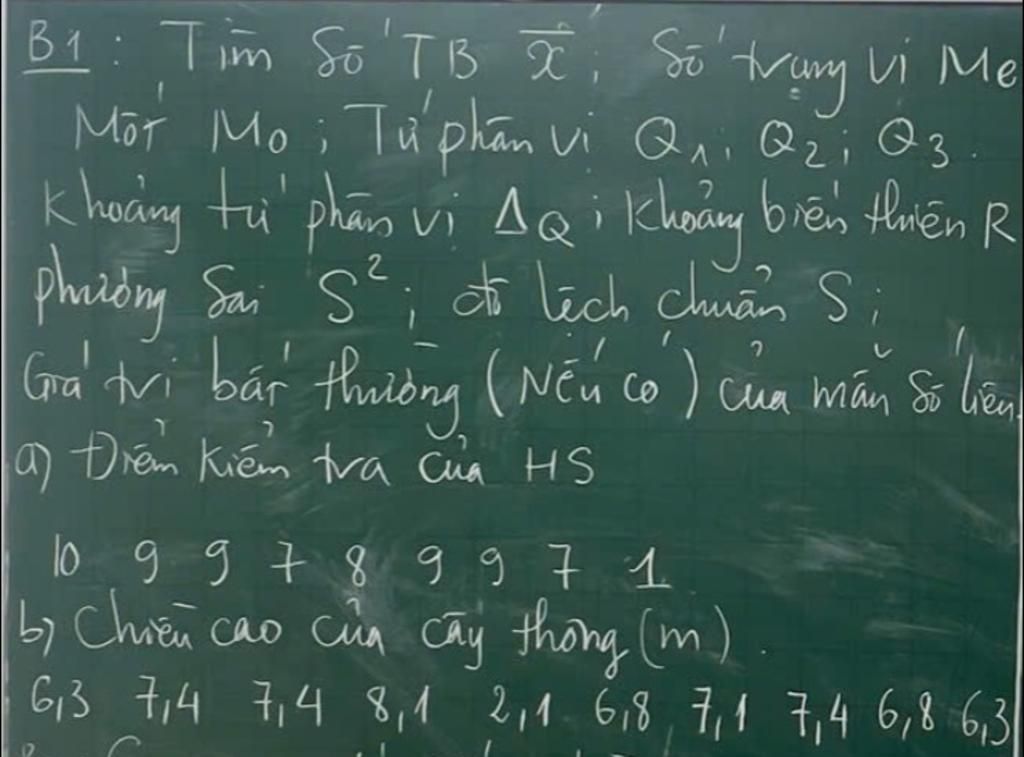 B1: Tìm Số TB x̄; Số trung vị Me
Mốt Mo; Tứ phân vị Q1; Q2; Q3.
Khoảng tứ phân vị ΔQ; Khoảng biến thiên R
phương sai S²; độ lệch chuẩn S;
Giá trị bất thường (Nếu có) của mẫu Số liệu
a) Điểm kiểm tra của HS
10 9 9 7 8 9 9 7 1
b) Chiều cao của cây thông (m).
6,3 7,4 7,4 8,1 2,1 6,8 7,1 7,4 6,8 6,3